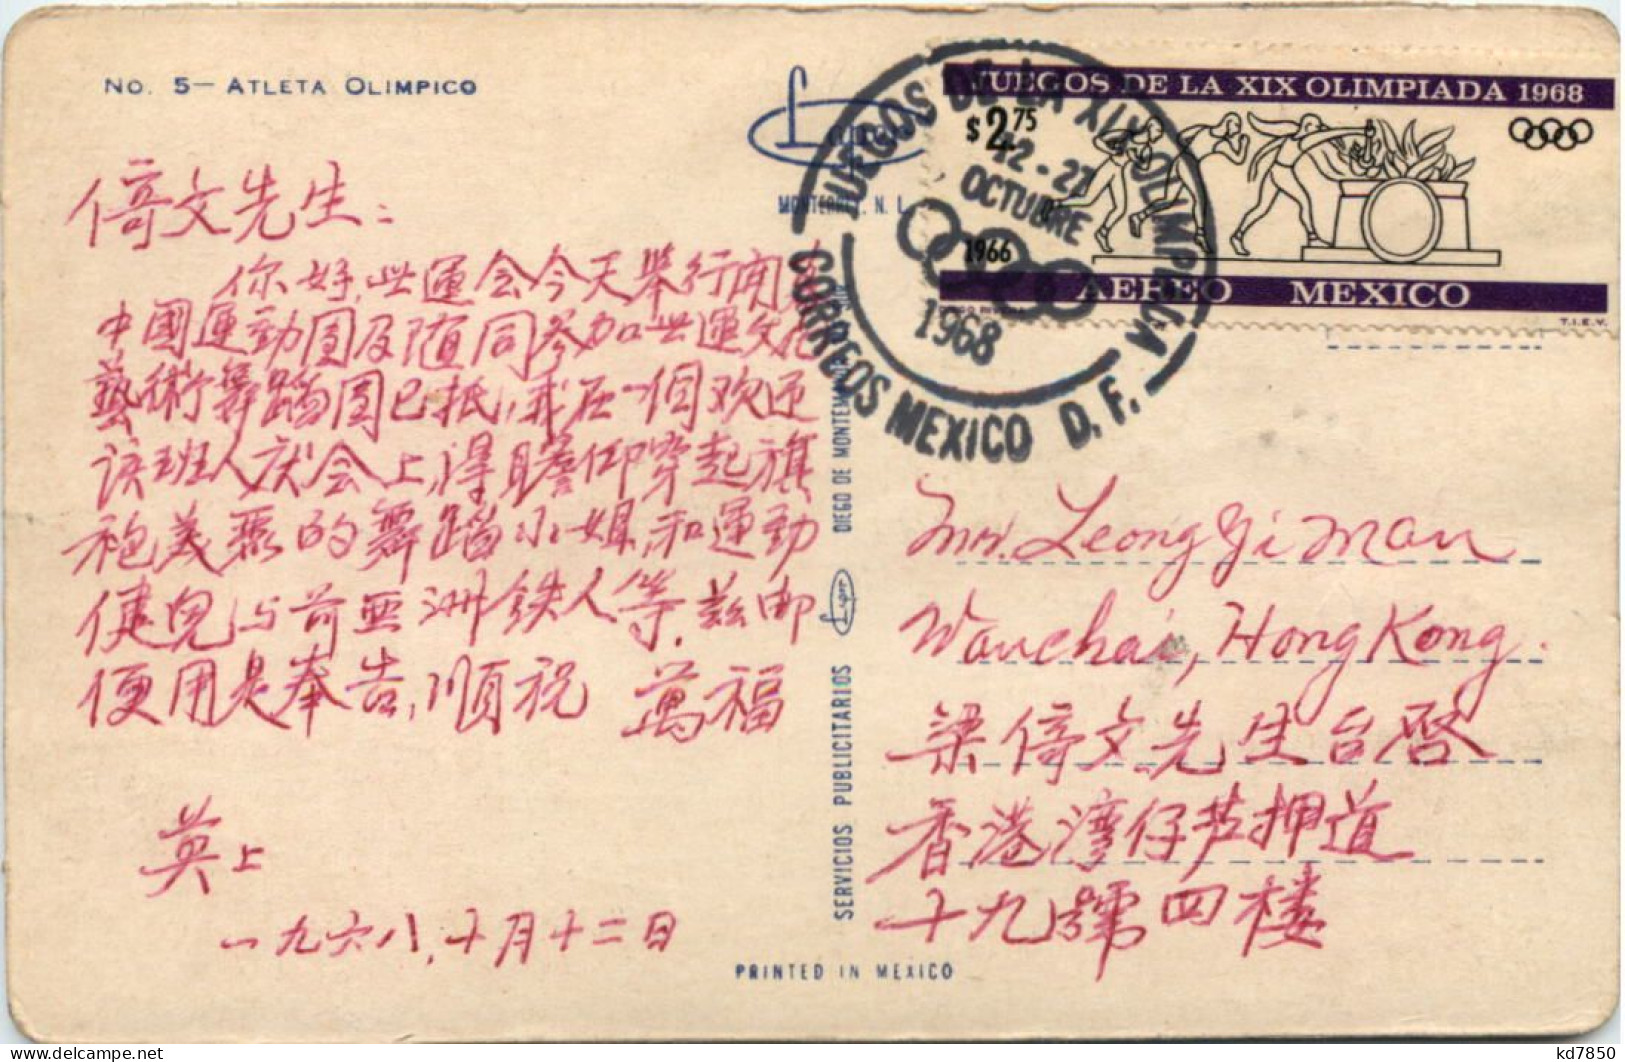 No. 5— ATLETA OLIMPICO
倚文先生：
你好,世運会今天举行開幕
中國運動團及隨同参加世運文化
藝術舞蹈團已抵,我在一個欢迎
該班人状会上,得瞻仰穿起旗
袍美麗的舞蹈小姐,和運動
健児与前亞洲鉄人等.兹郵
便用是奉告,順祝 萬福
英上
一九六八,十月十二日
MONTERREY, N. L.
DIEGO DE MONTEMAYOR
SERVICIOS PUBLICITARIOS
PRINTED IN MEXICO
JUEGOS DE LA XIX OLIMPIADA 1968
$2.75
1966
AEREO MEXICO
T.I.E.V.
JUEGOS DE LA XIX OLIMPIADA
12-27
OCTUBRE
1968
CORREOS MEXICO D. F.
Mr. Leong Yi Man
Wanchai, Hong Kong.
梁倚文先生台啓
香港湾仔芦押道
十九號四楼
kd7850